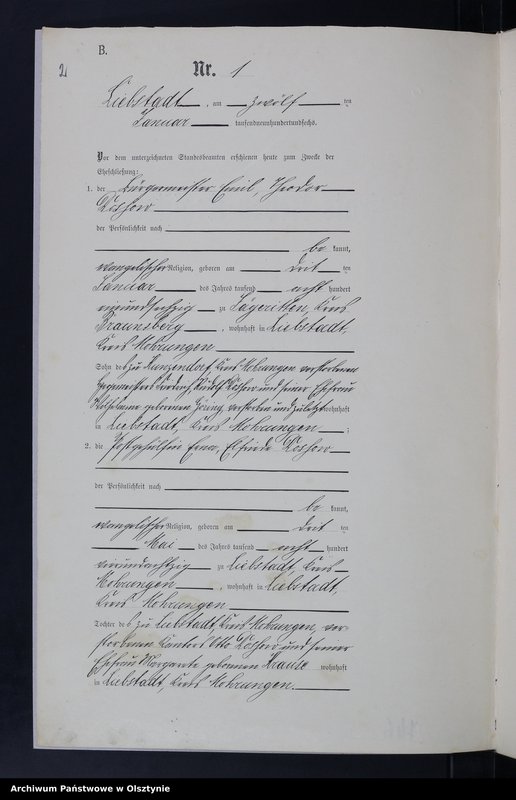 B.
2
Nr. 1
Liebstadt, am zwölf ten
Januar tausendneunhundertundsechs.
Vor dem unterzeichneten Standesbeamten erschienen heute zum Zwecke der
Eheschließung:
1. der Bürgermeister Emil, Theodor
der Persönlichkeit nach
be kannt,
evangelischer Religion, geboren am drit ten
Januar des Jahres tausend acht hundert
zu Lägeritten, Kreis
Braunsberg, wohnhaft in Liebstadt,
Kreis Mohrungen
Sohn des zu Kunzendorf, Kreis Mohrungen verstorbenen
und seiner Ehefrau
geborenen verstorben und zuletzt wohnhaft
in Liebstadt, Kreis Mohrungen ;
2. die Postgehülfin Erna, Elfriede Loshow
der Persönlichkeit nach
be kannt,
evangelischer Religion, geboren am drit ten
Mai des Jahres tausend acht hundert
vierundachtzig zu Liebstadt, Kreis
Mohrungen, wohnhaft in Liebstadt,
Kreis Mohrungen
Tochter des zu Liebstadt, Kreis Mohrungen, ver-
storbenen Kantors Otto Loshow und seiner
Ehefrau Margarete geborenen Krause wohnhaft
in Liebstadt, Kreis Mohrungen.
Archiwum Państwowe w Olsztynie